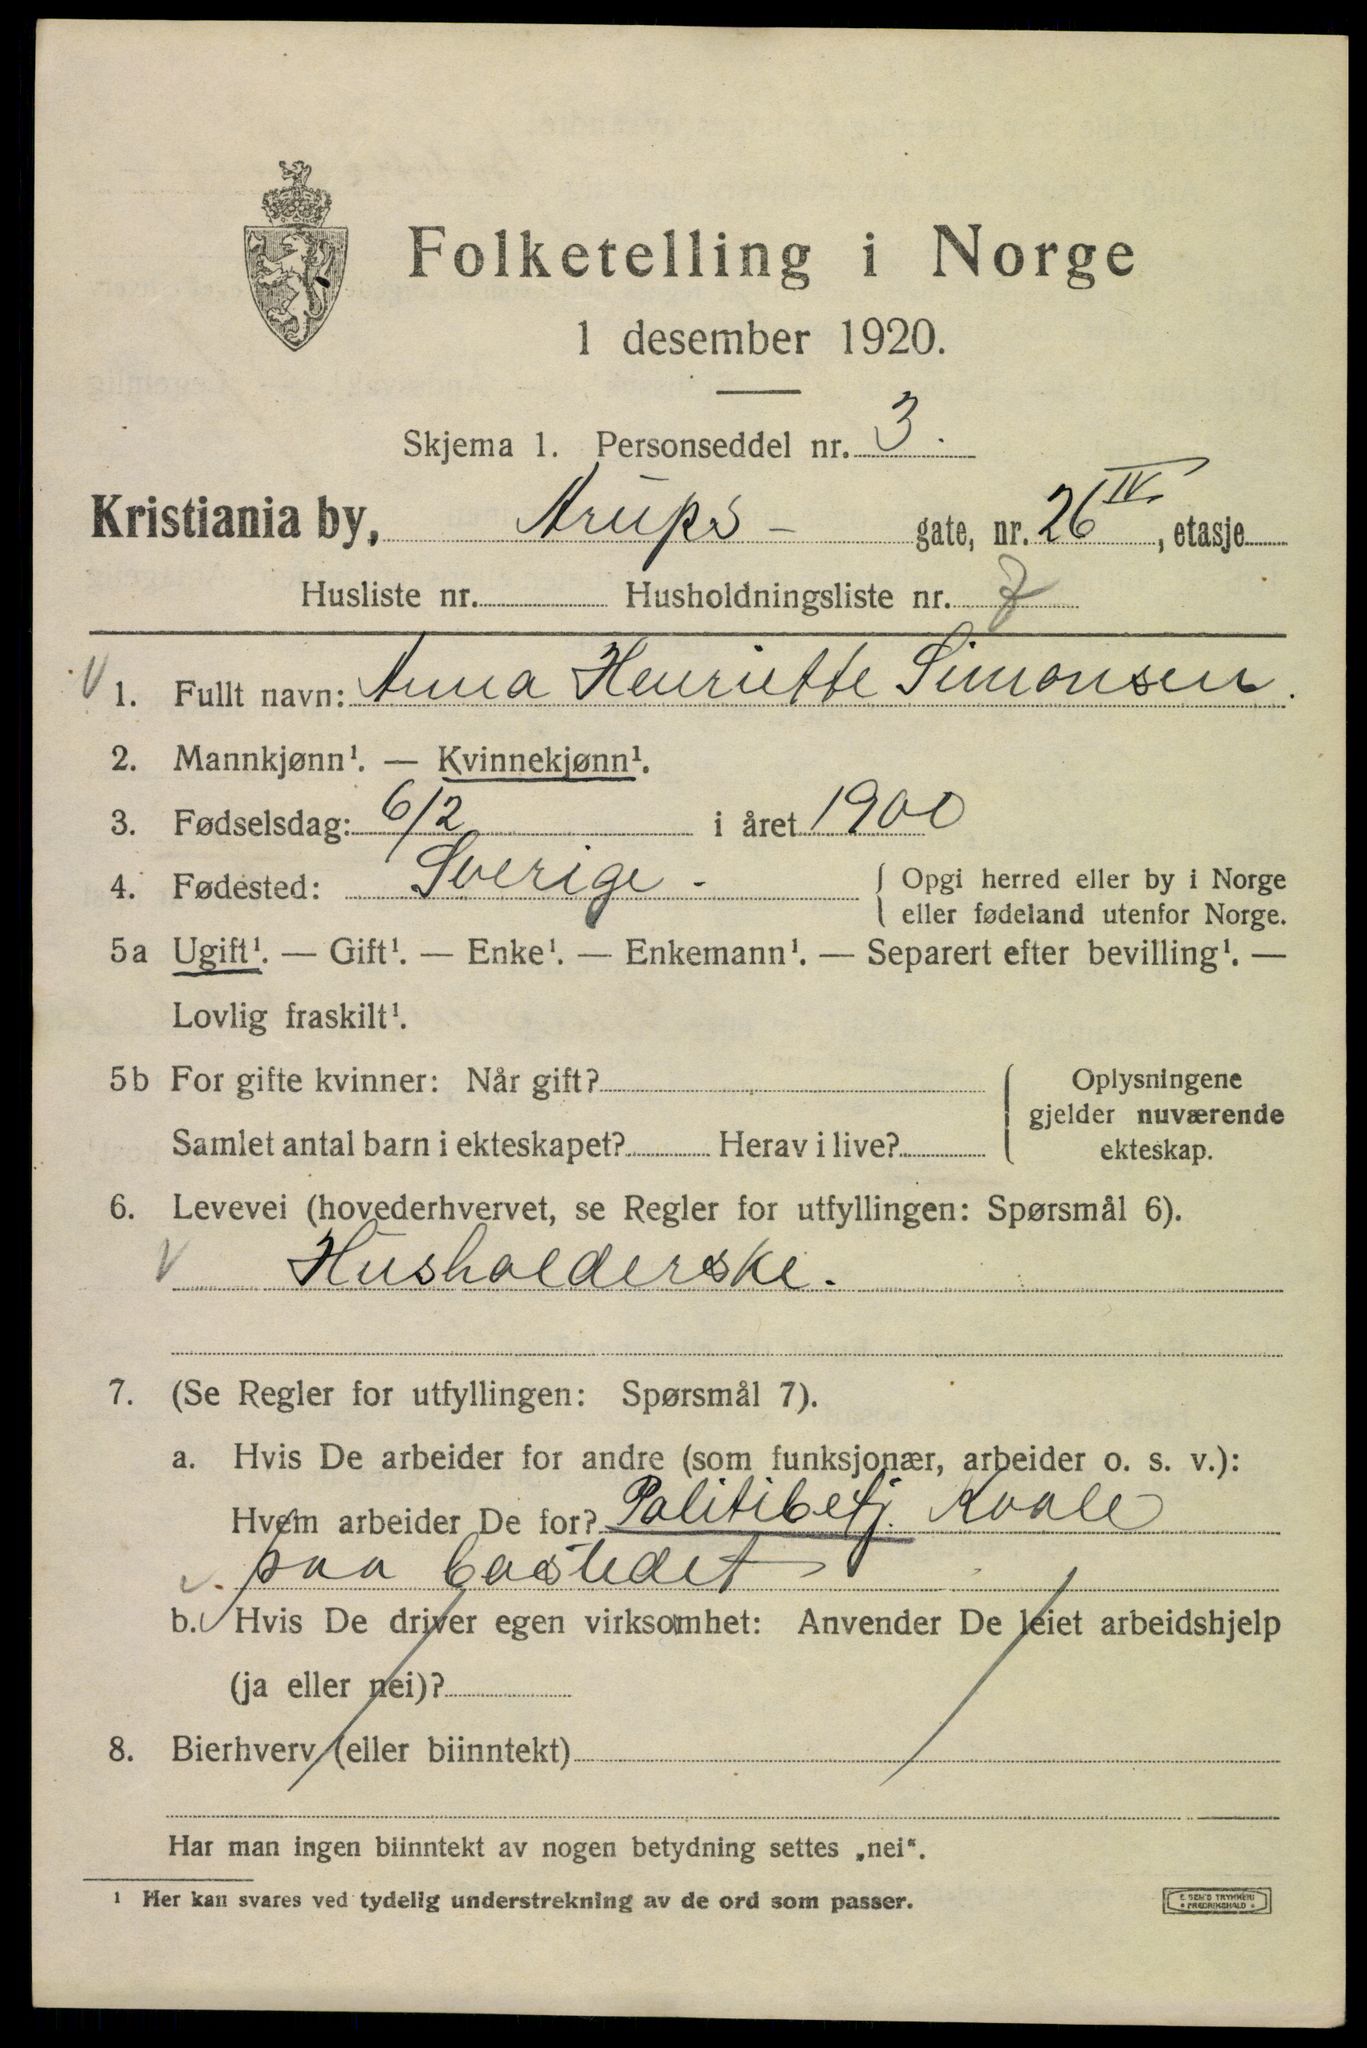 Folketelling i Norge
1 desember 1920.
Skjema 1. Personseddel nr. 3.
Kristiania by, Arups - gate, nr. 26 IV, etasje
Husliste nr. Husholdningsliste nr. 7
1. Fullt navn: Anna Henriette Simonsen.
2. Mannkjønn¹. — Kvinnekjønn¹.
3. Fødselsdag: 6/2 i året 1900
4. Fødested: Sverige - { Opgi herred eller by i Norge
eller fødeland utenfor Norge.
5a Ugift¹. — Gift¹. — Enke¹. — Enkemann¹. — Separert efter bevilling¹. —
Lovlig fraskilt¹.
5b For gifte kvinner: Når gift? { Oplysningene
gjelder nuværende
Samlet antal barn i ekteskapet? Herav i live? ekteskap.
6. Levevei (hovederhvervet, se Regler for utfyllingen: Spørsmål 6).
V Husholderske.
7. (Se Regler for utfyllingen: Spørsmål 7).
a. Hvis De arbeider for andre (som funksjonær, arbeider o. s. v.):
Hvem arbeider De for? Politibetj. Kvale
paa bostedet
b. Hvis De driver egen virksomhet: Anvender De leiet arbeidshjelp
(ja eller nei)?
8. Bierhverv (eller biinntekt)
Har man ingen biinntekt av nogen betydning settes „nei“.
¹ Her kan svares ved tydelig understrekning av de ord som passer.
TRYKKERI
FREDRIKSHALD